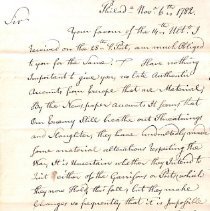 Philad.a Nov.r 6th, 1782.
Sir
Your favour of the 14th, Oct.r I
received on the 28th Ult. am much Obliged
to you for the Same; I Have nothing
Important to give you, no late Authentic
Accounts from Europe that are Material,
By the Newspaper accounts It seems that
Our Enemy Still breathe out Threatnings
and Slaughter, they have undoubtedly made
some material alterations Respecting the
War, It is Uncertain whether they Intend to
Quit either of the Garrisons or Posts which
they now Hold this fall, but they make
Changes so frequently that it is Impossible